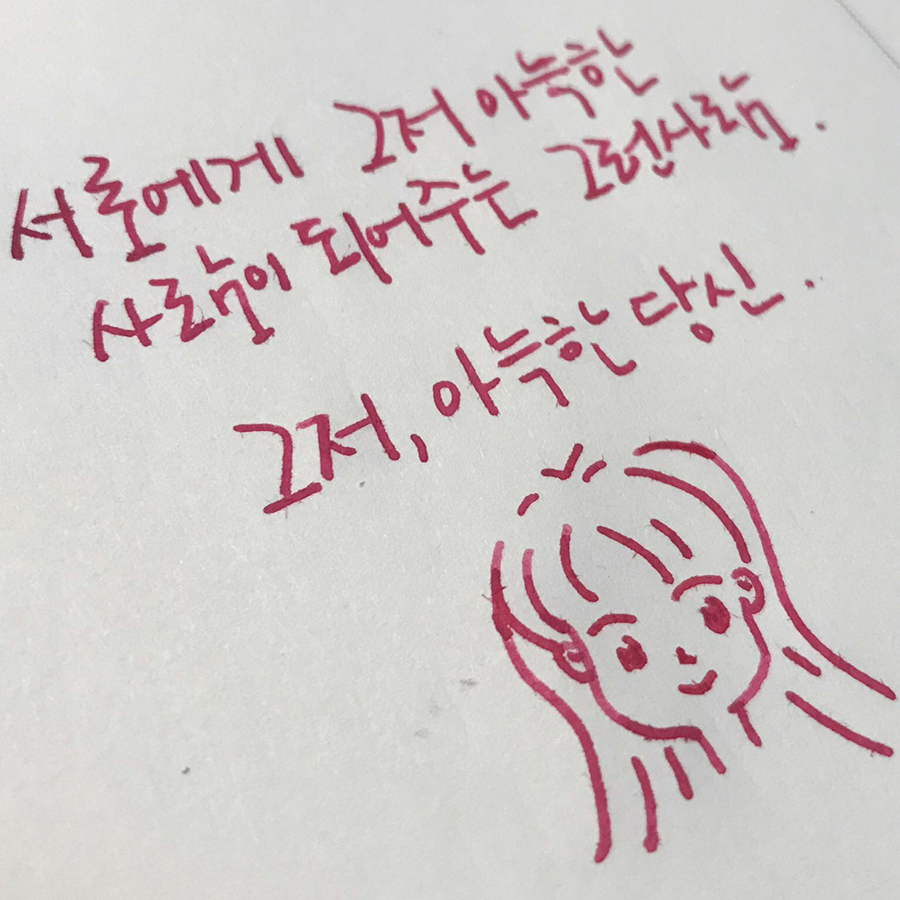 서로에게 그저 아늑한
사람이 되어주는 그런사람.
그저, 아늑한 당신.